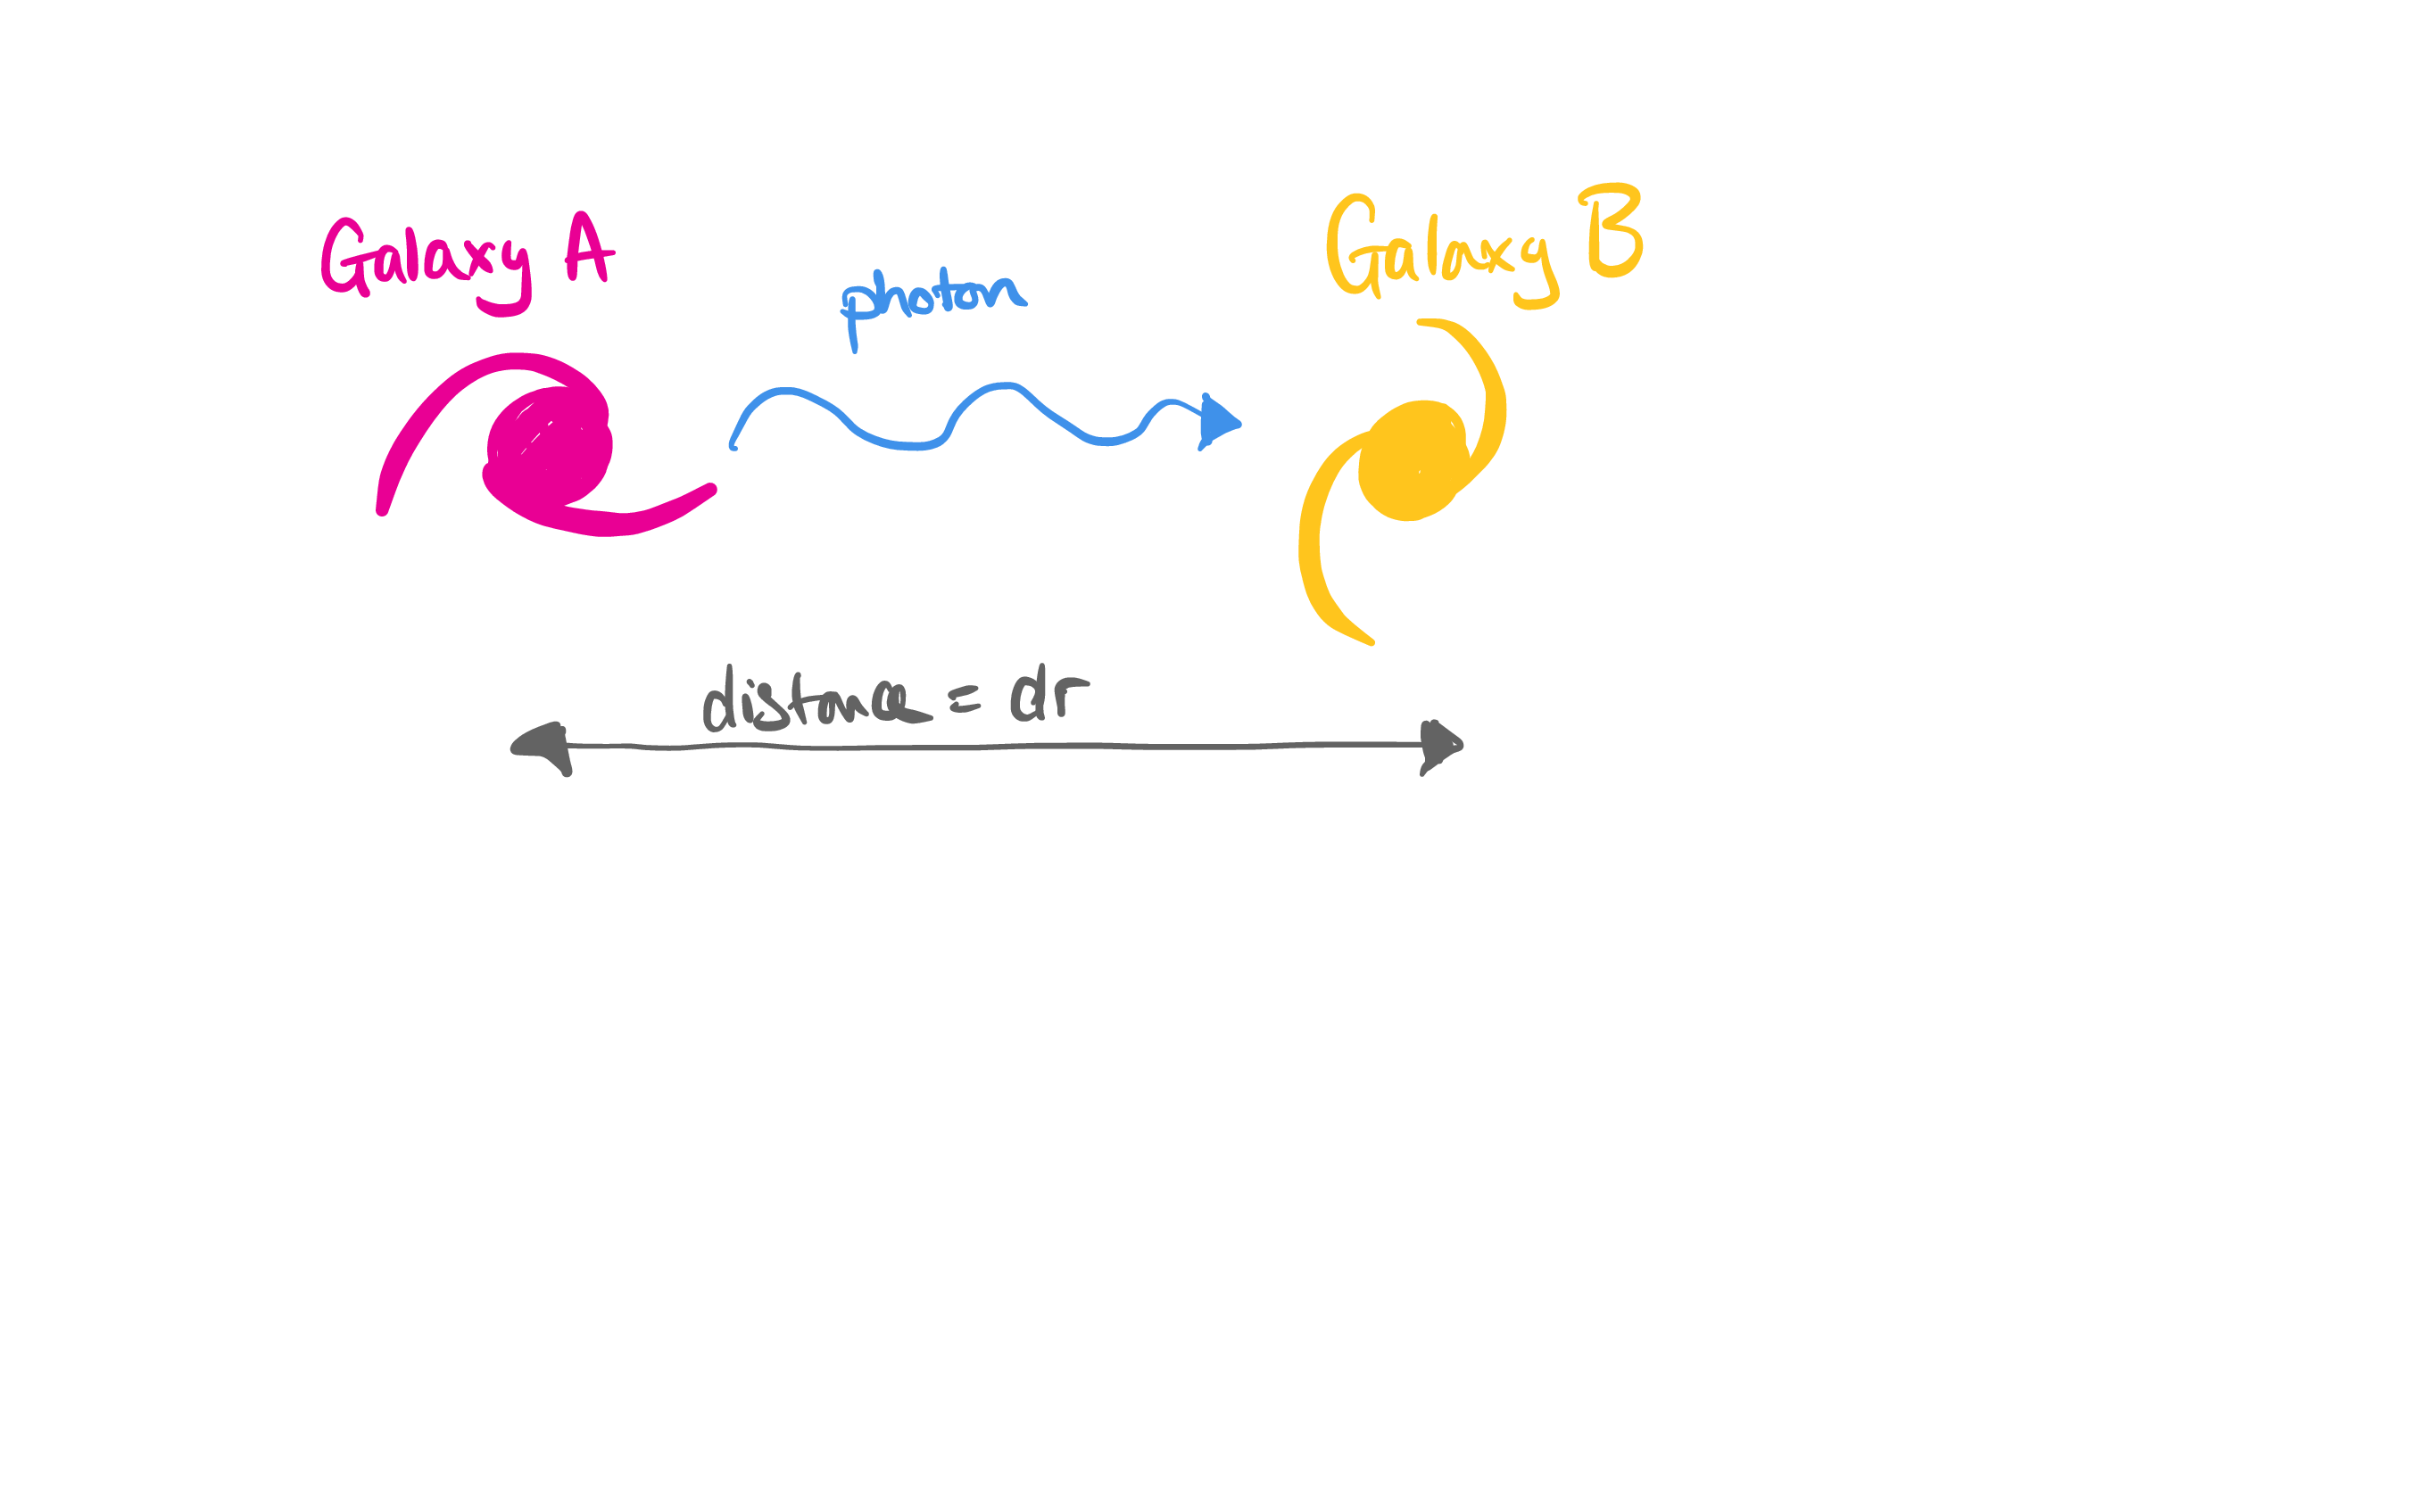 Galaxy A
photon
Galaxy B
distance = dr